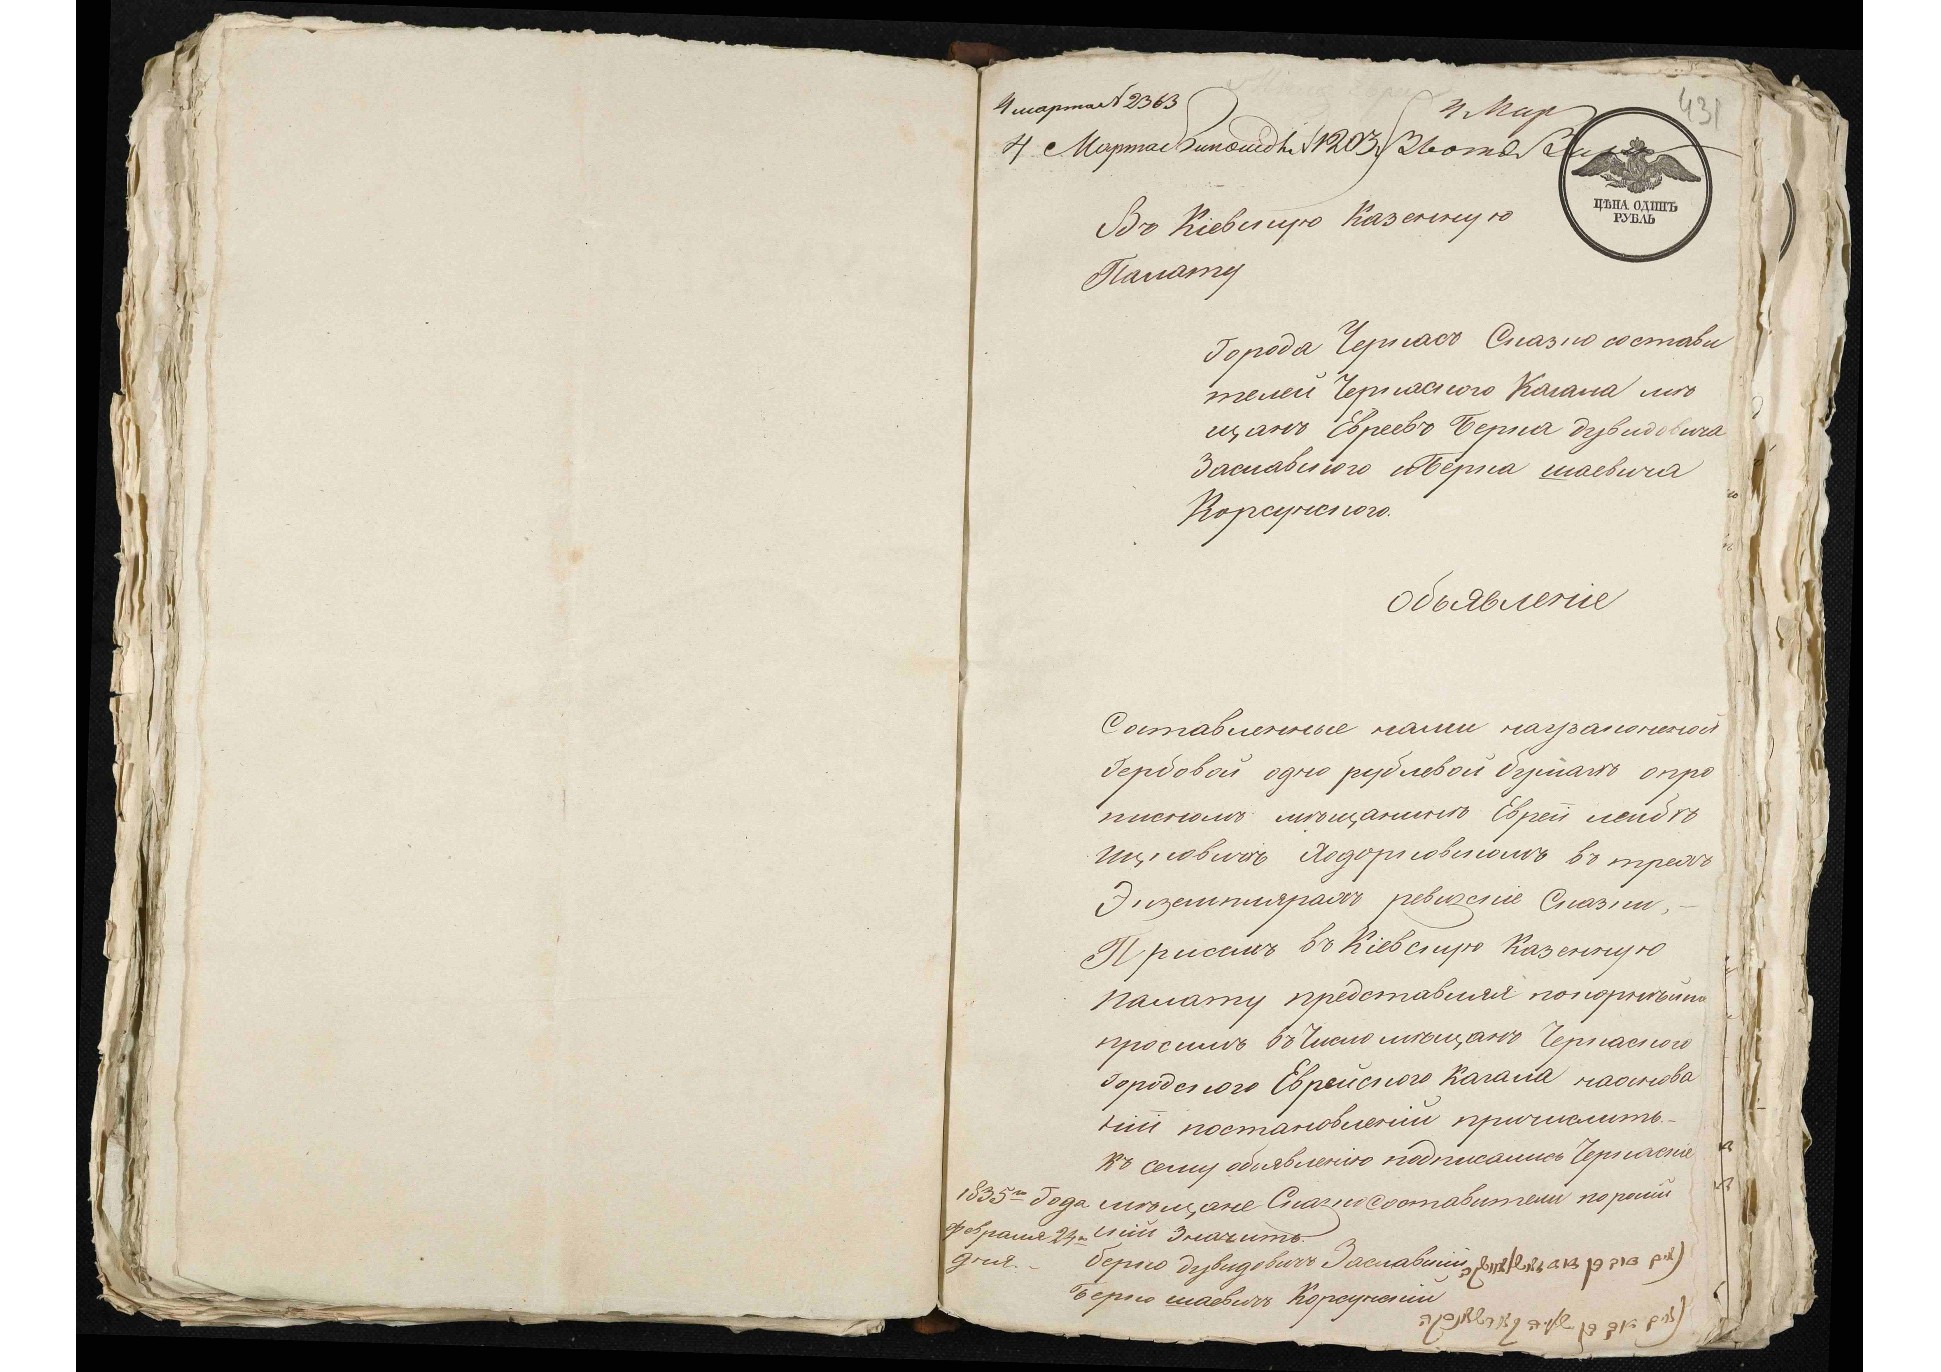 4 марта № 2363
4 Мар
431
4 Марта № 1203
ЦѢНА ОДИНЪ
РУБЛЬ
Въ Кіевскую Казенную
Палату
Города Черкасъ Сказко состави
телей Черкаского Кагала мѣ
щанъ Евреевъ Берка дувидовича
Заславского и Берка шаевича
Корсунского.
Обьявленіе
Составленные нами
Гербовой одно рублевой бумагѣ опро
писномъ мѣщанинѣ Еврей лейбѣ
ицковичѣ Ходорковскомъ въ трехъ
Экземплярахъ ревизскіе Сказки, —
При семъ въ Кіевскую Казенную
палату представляя покорнѣйше
просимъ въ Число мѣщанъ Черкаского
Городского Еврейского Кагала наоснова
ніи постановленій причислить. —
Къ сему обьявленію подписались Черкаскіе
1835го Года мѣщане Сказко Составители по росій
февраля 24го скій Значитъ.
дня. — берко дувидовичъ Заславскій
Берко шаевичъ Корсунский